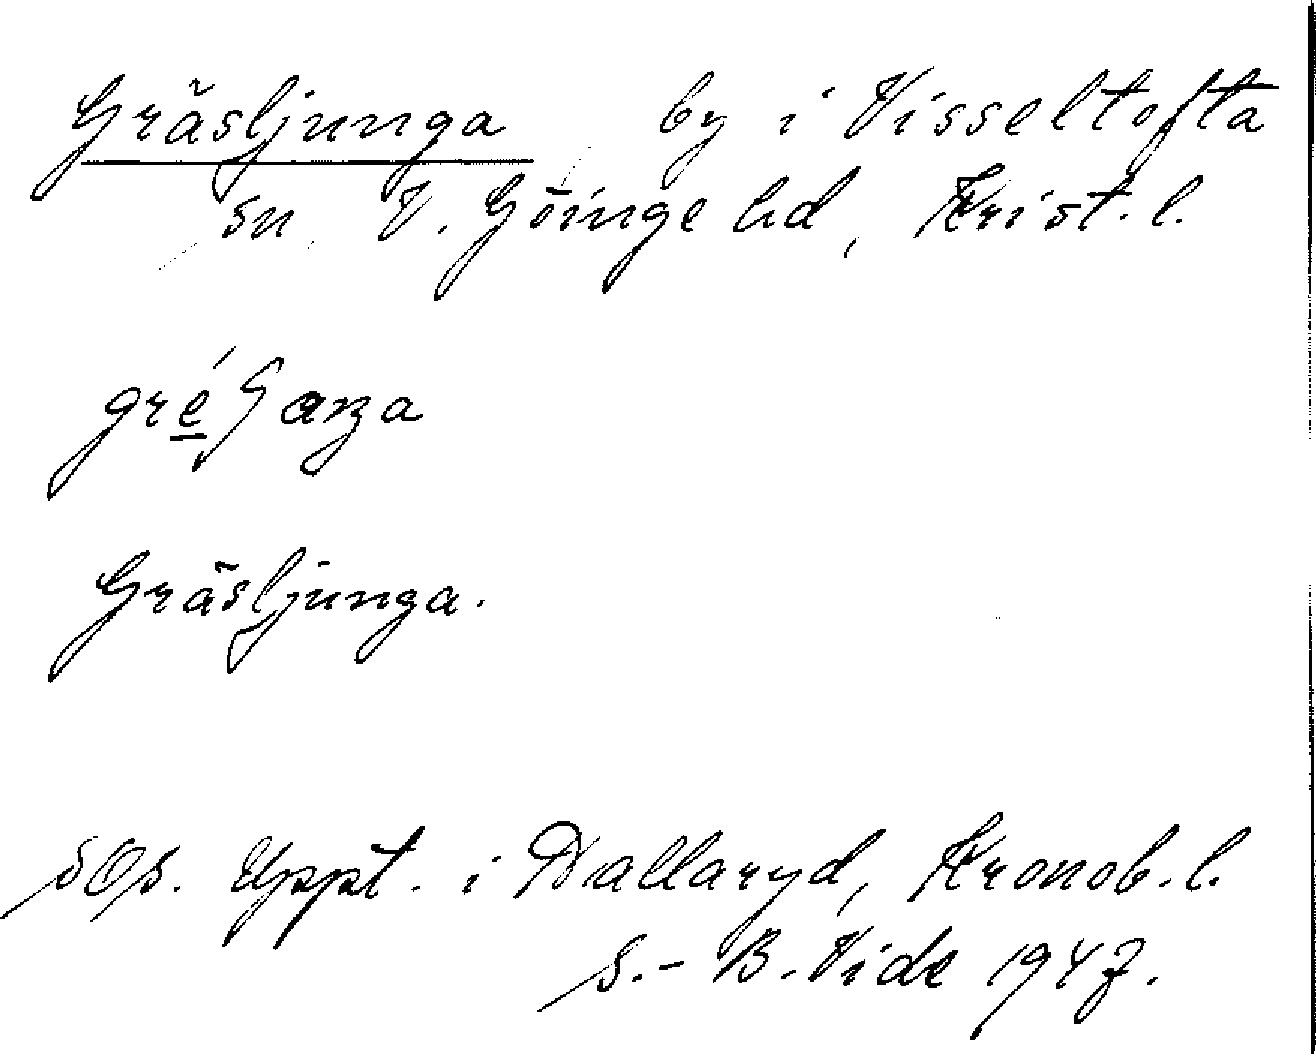 Gräsljunga by i Visseltofta
sn V. Göinge hd, Krist. l.
Gräsljunga.
Uppt. i Hallaryd, Kronob. l.
S.-B. Vide 1947.